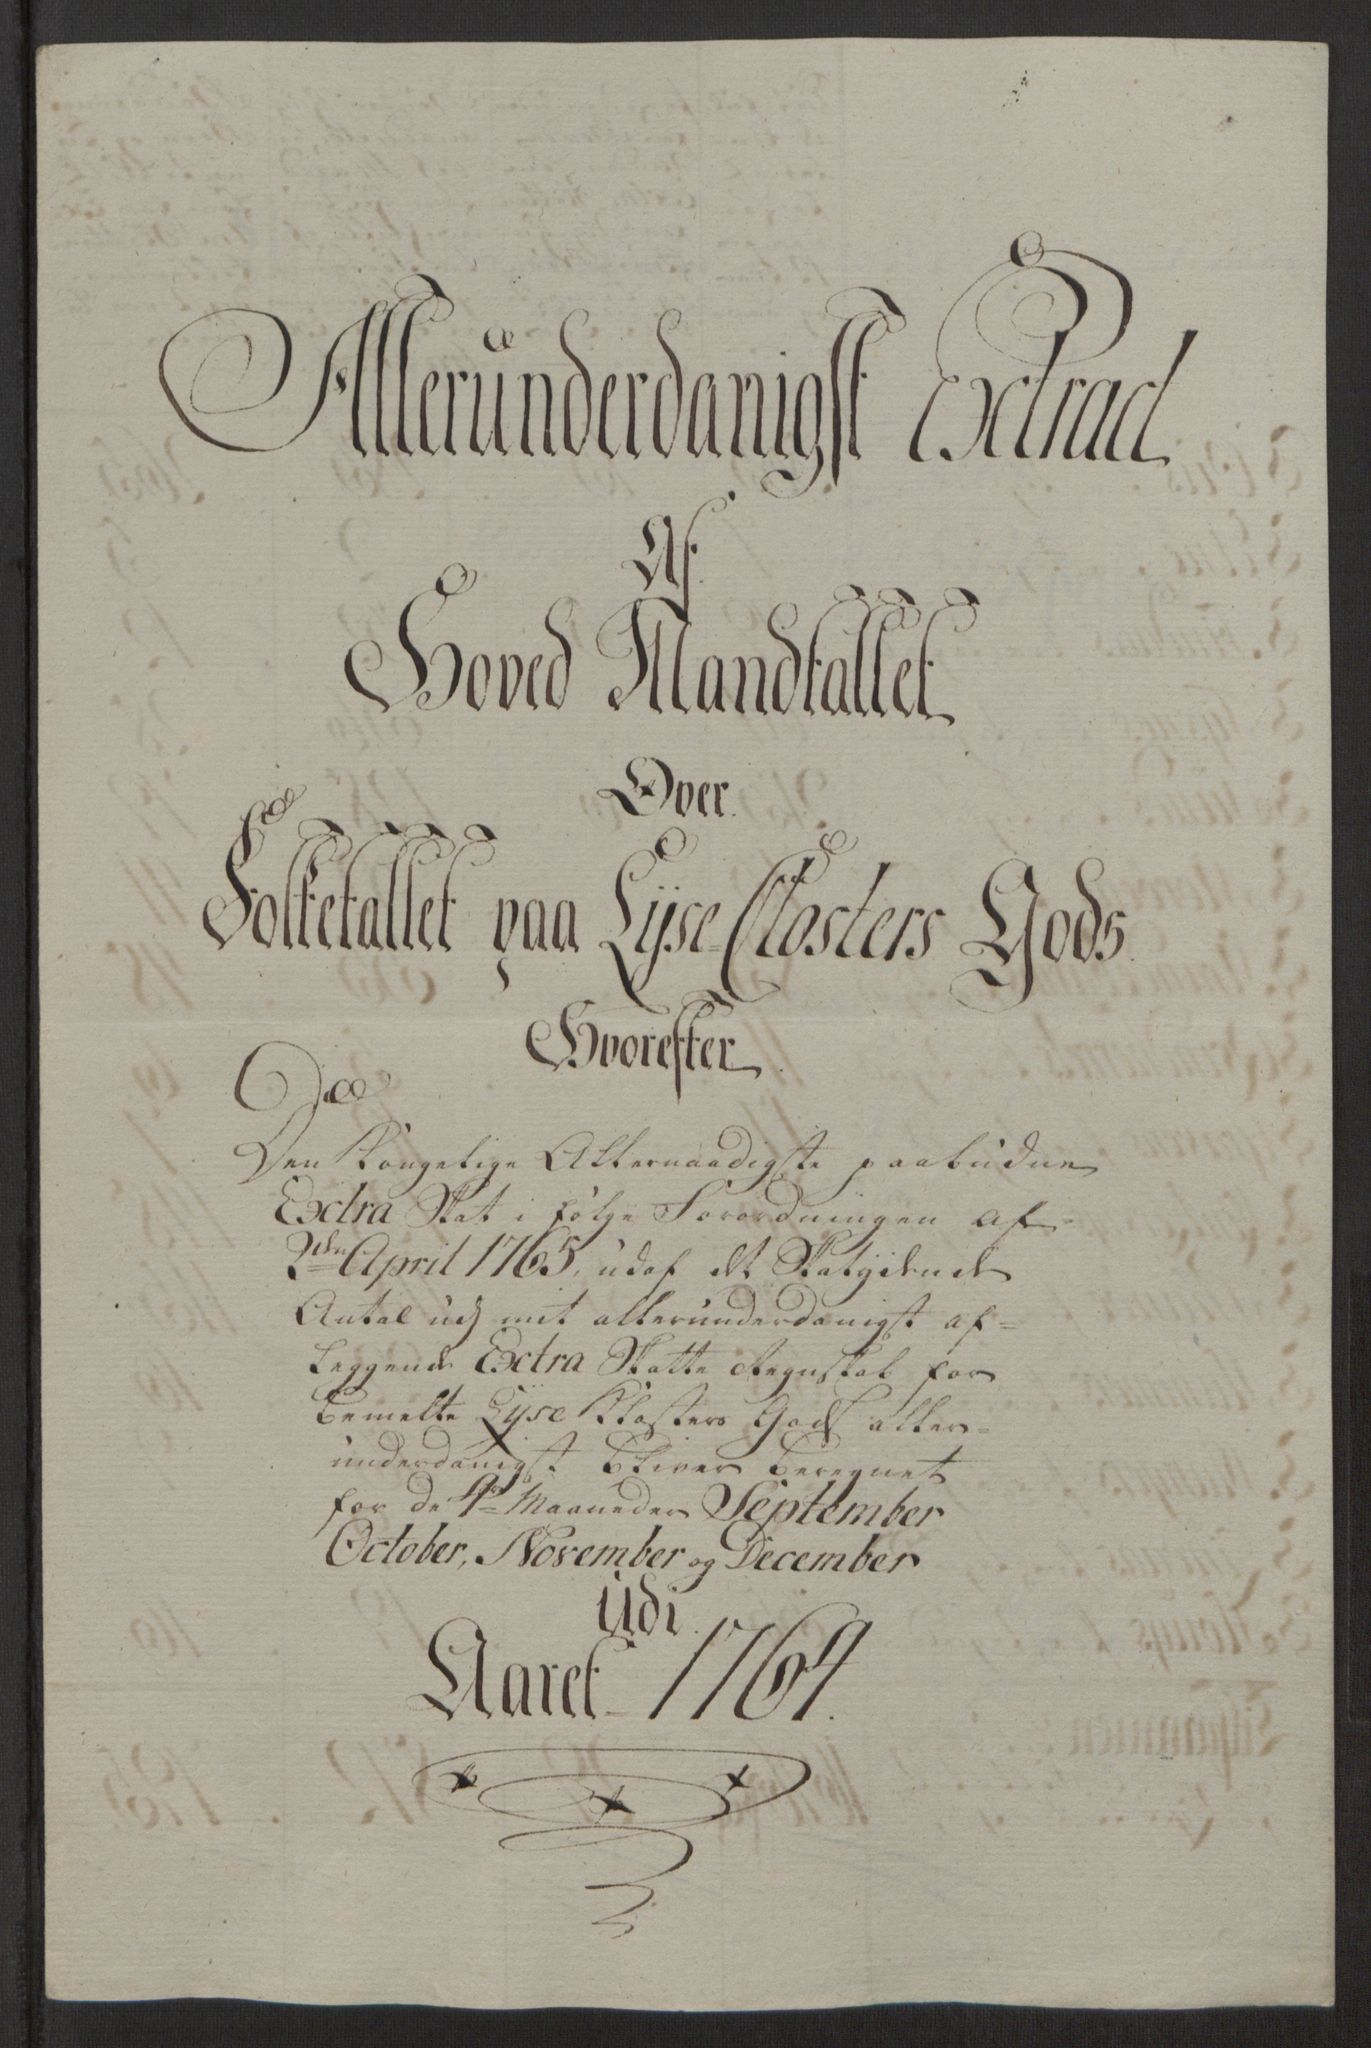 Allerunderdanigst Extract
Af
Hoved Mandtallet
Over
Folketallet paa Lyse Closters Gods
Hvorefter
Den Kongelige Allernaadigste paabudne
Extra Skat i følge Forordningen af
2den April 1765, udaf det Skatydende
Antal udj mit allerunderdanigst af-
leggende Extra Skatte Regnskab for
bemelte Lyse Klosters Gods aller-
underdanigst bliver beregnet
for de 4re Maaneder September
October, November og December
Udi
Aaret 1764.